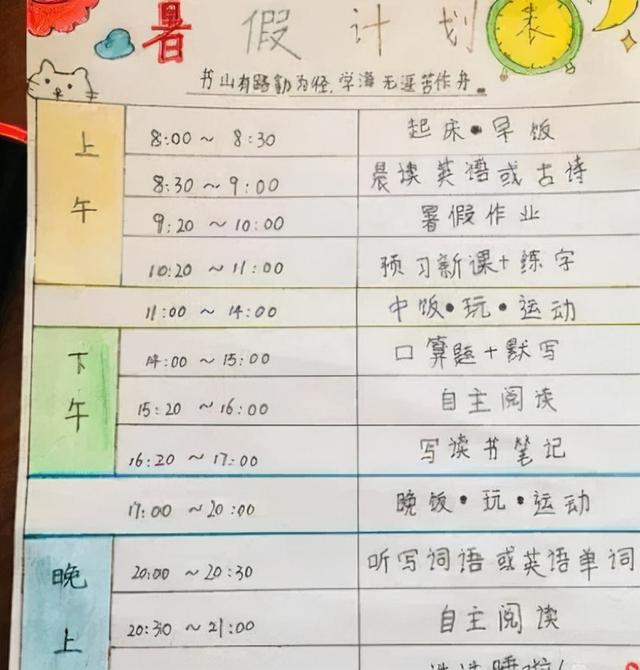 暑假计划表
书山有路勤为径,学海无涯苦作舟。
上午
8:00 ~ 8:30 起床·早饭
8:30 ~ 9:00 晨读英语或古诗
9:20 ~ 10:00 暑假作业
10:20 ~ 11:00 预习新课+练字
11:00 ~ 14:00 中饭·玩·运动
下午
14:00 ~ 15:00 口算题+默写
15:20 ~ 16:00 自主阅读
16:20 ~ 17:00 写读书笔记
17:00 ~ 20:00 晚饭·玩·运动
晚上
20:00 ~ 20:30 听写词语或英语单词
20:30 ~ 21:00 自主阅读